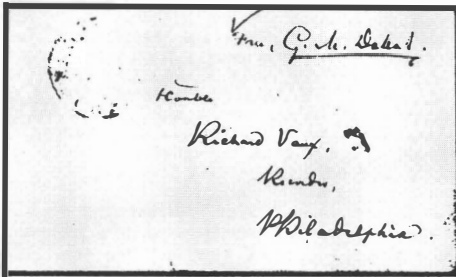 Free, G. M. Dallas.
Honble
Richard Vaux,
Recorder,
Philadelphia.